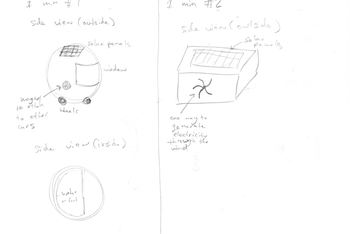 1 min #1
side view (outside)
solar panels
window
wheels
to other
cars
side view (inside)
1 min #2
side view (outside)
solar
panels
one way to
generate
electricity
through the
wind